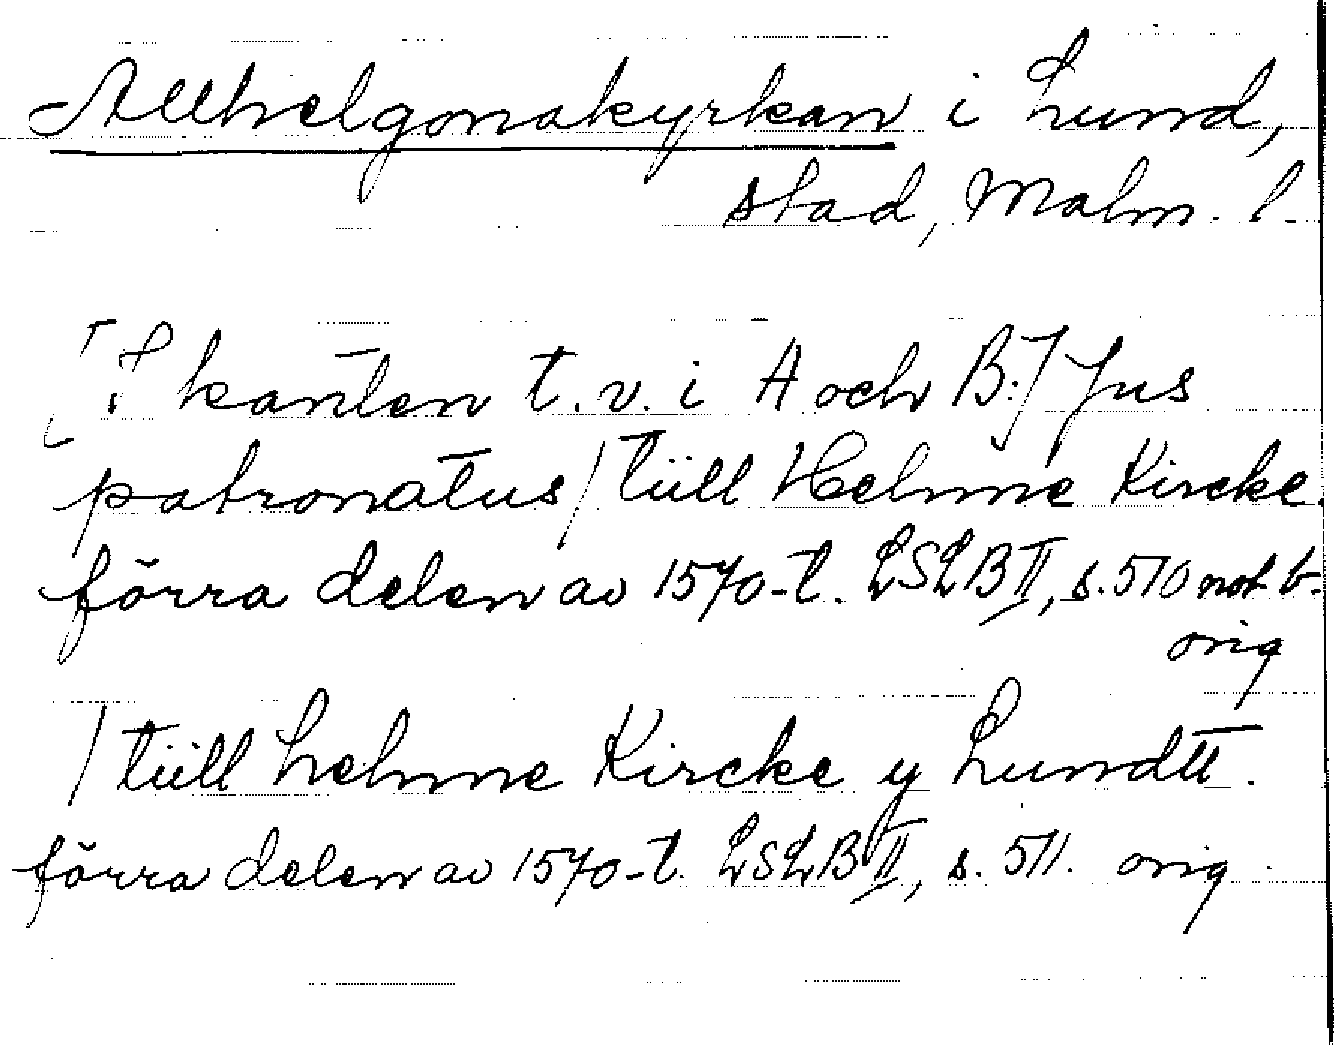 Allhelgonakyrkan i Lund,
stad, Malm. l.
[I kanten t.v. i A och B:] Jus
patronatus / tiill Helmne Kircke.
förra delen av 1570-t. LSLB II, s. 510 not b.
orig
/ tiill helmne Kircke y Lundtt.
förra delen av 1570-t. LSLB II, s. 511. orig.